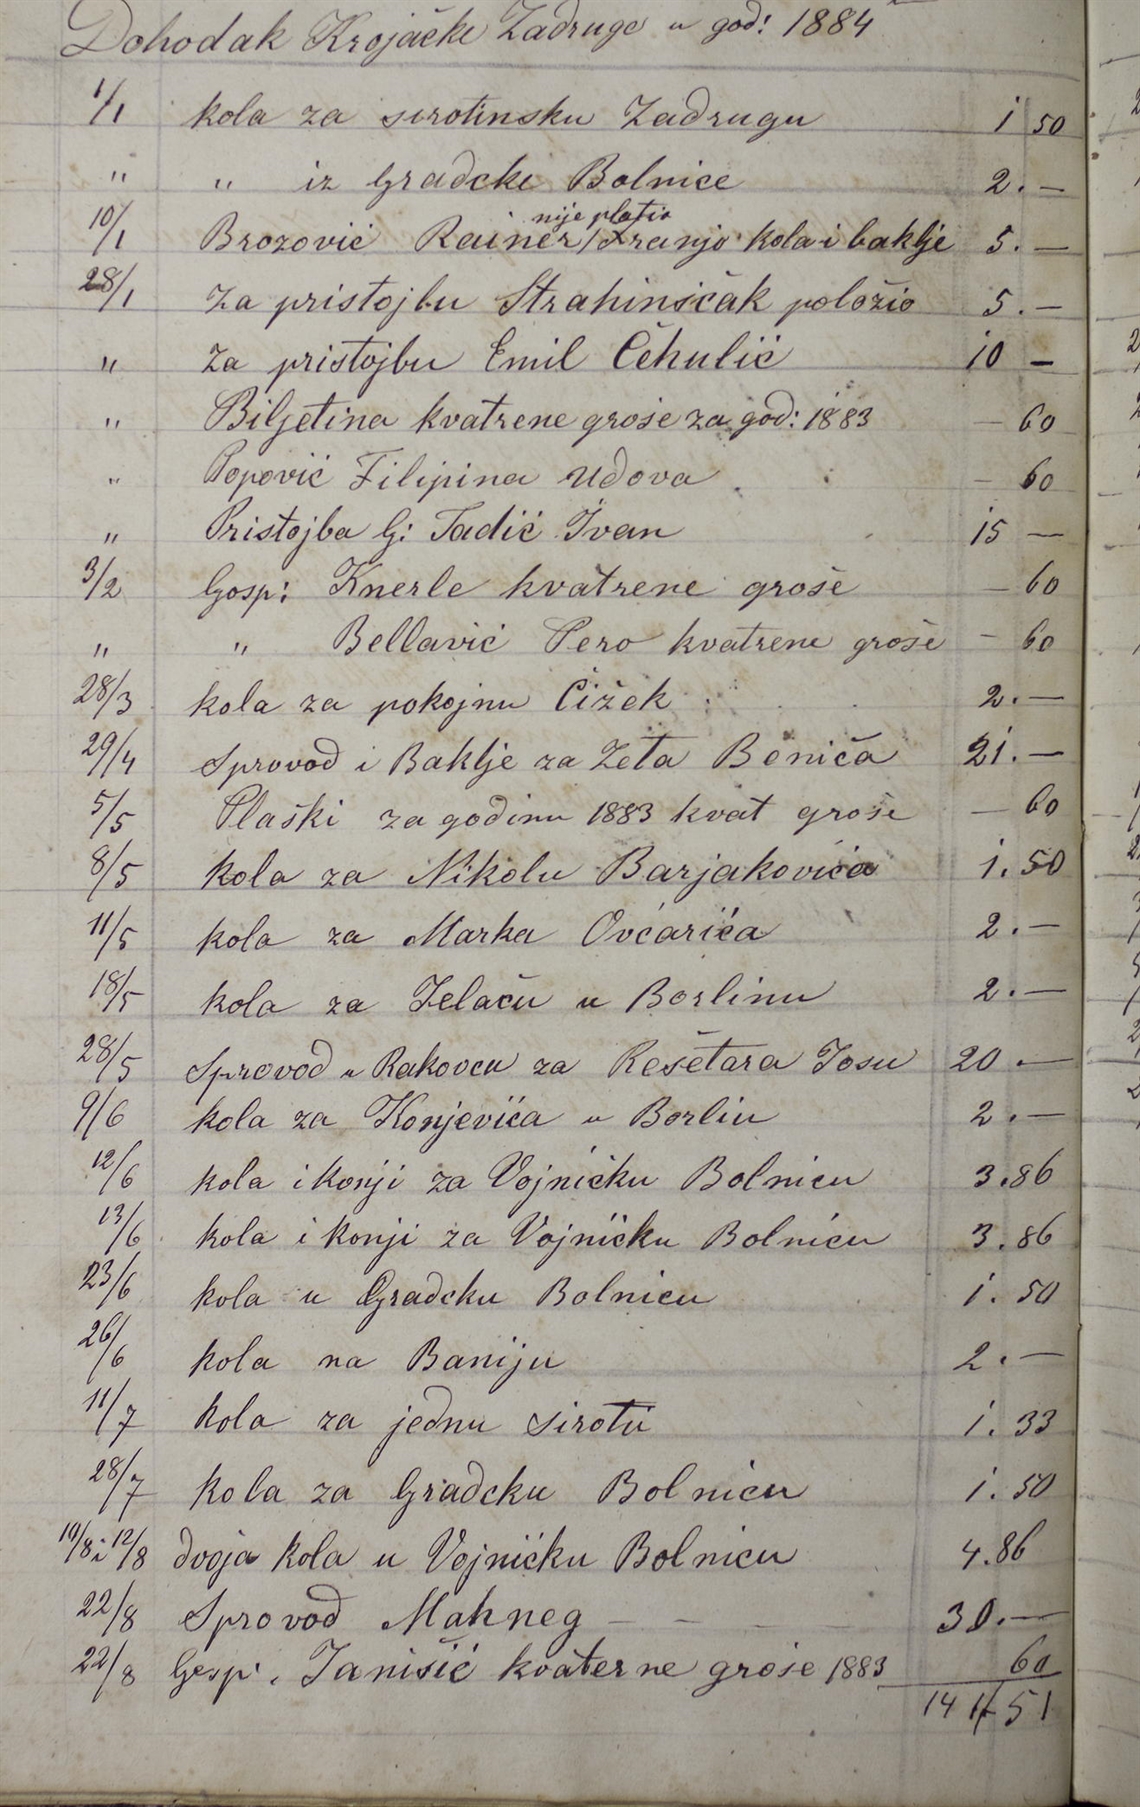 Dohodak Krojačke Zadruge u god: 1884
1/1 kola za sirotinsku Zadrugu 1 50
" " iz Gradcke Bolnice 2.—
nije platio
10/1 Brozović Rainer/Franjo kola i baklje 5.—
28/1 Za pristojbu Strahinščak položio 5.—
" Za pristojbu Emil Čehulić 10 —
" Biljetina kvatrene groše za god: 1883 — 60
" Popović Filipina Udova — 60
" Pristojba G: Tadić Ivan 15 —
3/2 Gosp: Knerle kvatrene groše — 60
" " Bellavić Pero kvatrene groše — 60
28/3 kola za pokojnu Cižek 2.—
29/4 Sprovod i Baklje za Zeta Beniča 21.—
5/5 Plaški za godinu 1883 kvat groše — 60
8/5 kola za Nikolu Barjakovića 1.50
11/5 kola za Marka Ovćarića 2.—
18/5 kola za Jelaču u Borlinu 2.—
28/5 Sprovod u Rakovcu za Rešetara Josu 20.—
9/6 kola za Konjevića u Borlin 2.—
12/6 kola i konji za Vojničku Bolnicu 3.86
13/6 kola i konji za Vojničku Bolnicu 3.86
23/6 kola u Gradcku Bolnicu 1.50
26/6 kola na Baniju 2.—
11/7 kola za jednu sirotu 1.33
28/7 kola za Gradcku Bolnicu 1.50
10/8 i 12/8 dvoja kola u Vojničku Bolnicu 4.86
22/8 Sprovod Mahneg — — 30.—
22/8 Gosp. Janišić kvaterne groše 1883 60
141 51